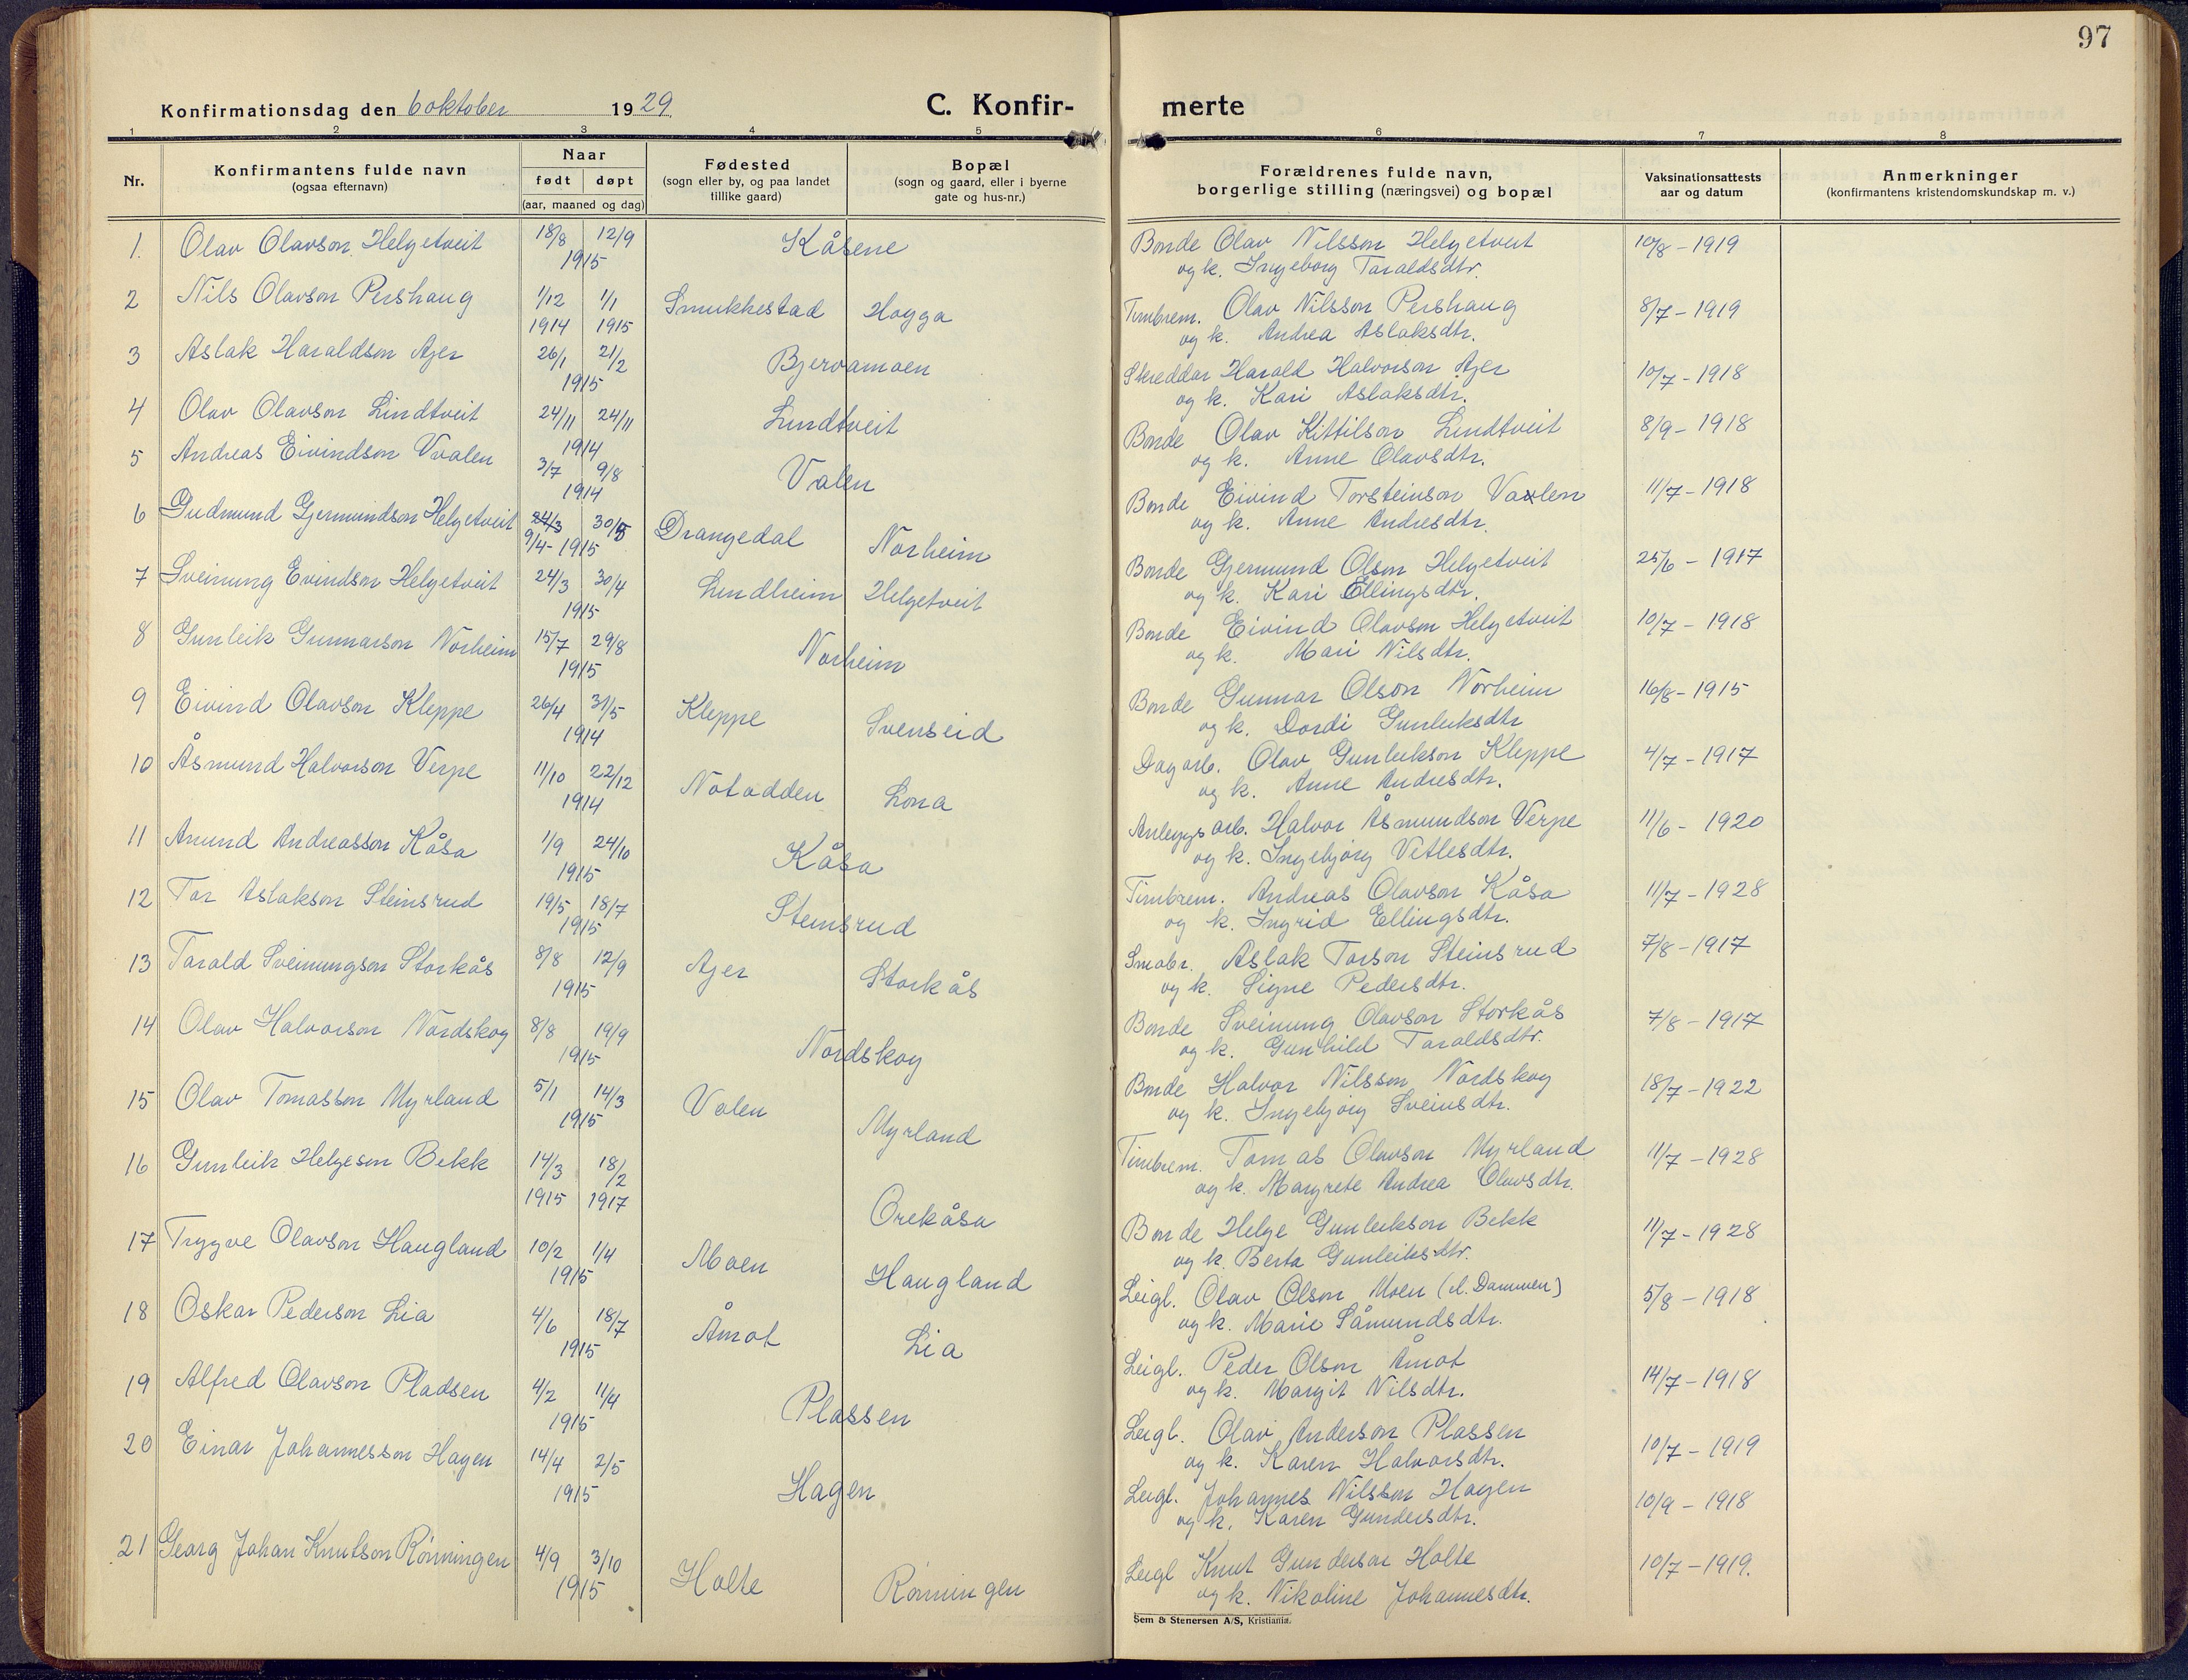 97
Konfirmationsdag den 6 oktober 1929. C. Konfir- merte
1 2 3 4 5 6 7 8
Nr. Konfirmantens fulde navn (ogsaa efternavn) Naar født døpt (aar, maaned og dag) Fødested (sogn eller by, og paa landet tillike gaard) Bopæl (sogn og gaard, eller i byerne gate og hus-nr.) Forældrenes fulde navn, borgerlige stilling (næringsvei) og bopæl Vaksinationsattests aar og datum Anmerkninger (konfirmantens kristendomskundskap m. v.)
1. Olav Olavson Helgetveit 18/8 12/9 1915 Kåsene Bonde Olav Nilsson Helgetveit 10/8 - 1919
og k. Ingeborg Taraldsdtr.
2 Nils Olavson Pershaug 1/12 1914 1/1 1915 Smukkestad Hogga Timbrem. Olav Nilsson Pershaug 8/7 - 1919
og k. Andrea Aslaksdtr.
3 Aslak Haraldson Ajer 26/1 21/2 1915 Bjervamoen Skreddar Harald Halvorson Ajer 10/7 - 1918
og k. Kari Aslaksdtr.
4 Olav Olavson Lindtveit 24/11 24/11 1914 Lindtveit Bonde Olav Kittilson Lindtveit 8/9 - 1918
og k. Anne Olavsdtr.
5 Andreas Eivindson Valen 3/7 9/8 1914 Valen Bonde Eivind Torsteinson Valen 11/7 - 1918
og k. Anne Andresdtr.
6 Gudmund Gjermundson Helgetveit 24/3 30/5 9/4 - 1915 Drangedal Norheim Bonde Gjermund Olson Helgetveit 25/6 - 1917
og k. Kari Ellingsdtr.
7 Sveinung Eivindson Helgetveit 24/3 30/4 1915 Lindheim Helgetveit Bonde Eivind Olavson Helgetveit 10/7 - 1918
og k. Mari Nilsdtr.
8 Gunleik Gunnarson Norheim 15/7 29/8 1915 Norheim Bonde Gunnar Olson Norheim 16/8 - 1915
og k. Dordi Gunleiksdtr
9 Eivind Olavson Kleppe 26/4 31/5 1914 Kleppe Svenseid Dagarb. Olav Gunleikson Kleppe 4/7 - 1917
og k. Anne Andresdtr.
10 Åsmund Halvorson Verpe 11/10 22/12 1914 Notodden Lona Anleggsarb. Halvor Åsmundson Verpe 11/6 - 1920
og k. Ingebjørg Vetlesdtr.
11 Anund Andreasson Kåsa 1/9 24/10 1915 Kåsa Timbrem. Andreas Olavson Kåsa 11/7 - 1928
og k. Ingrid Ellingsdtr.
12 Tor Aslakson Steinsrud 19/5 18/7 1915 Steinsrud Småbr. Aslak Torson Steinsrud 7/8 - 1917
og k. Signe Pedersdtr.
13 Tarald Sveinungson Storkås 8/8 12/9 1915 Ajer Storkås Bonde Sveinung Olavson Storkås 7/8 - 1917
og k. Gunhild Taraldsdtr.
14 Olav Halvorson Nordskog 8/8 19/9 1915 Nordskog Bonde Halvor Nilsson Nordskog 18/7 - 1922
og k. Ingebjørg Sveinsdtr.
15 Olav Tomasson Myrland 5/1 14/3 1915 Valen Myrland Timbrem. Tomas Olavson Myrland 11/7 - 1928
og k. Margrete Andrea Olavsdtr.
16 Gunleik Helgeson Bekk 14/3 1915 18/2 1917 Orekåsa Bonde Helge Gunleikson Bekk 11/7 - 1928
og k. Berta Gunleiksdtr.
17 Trygve Olavson Haugland 10/2 1/4 1915 Moen Haugland Leigl. Olav Olson Moen (el. Dammen) 5/8 - 1918
og k. Marie Såmundsdtr.
18 Oskar Pederson Lia 4/6 18/7 1915 Åmot Lia Leigl. Peder Olson Åmot 14/7 - 1918
og k. Margit Nilsdtr.
19 Alfred Olavson Pladsen 4/2 11/4 1915 Plassen Leigl. Olav Anderson Plassen 10/7 - 1919
og k. Karen Halvorsdtr.
20 Einar Johannesson Hagen 14/4 2/5 1915 Hagen Leigl. Johannes Nilsson Hagen 10/9 - 1918
og k. Karen Gundersdtr.
21 Georg Johan Knutson Rönningen 4/9 3/10 1915 Holte Rönningen Leigl Knut Gunderson Holte 10/7 - 1919.
og k. Nikoline Johannesdtr.
Sem & Stenersen A/S, Kristiania.